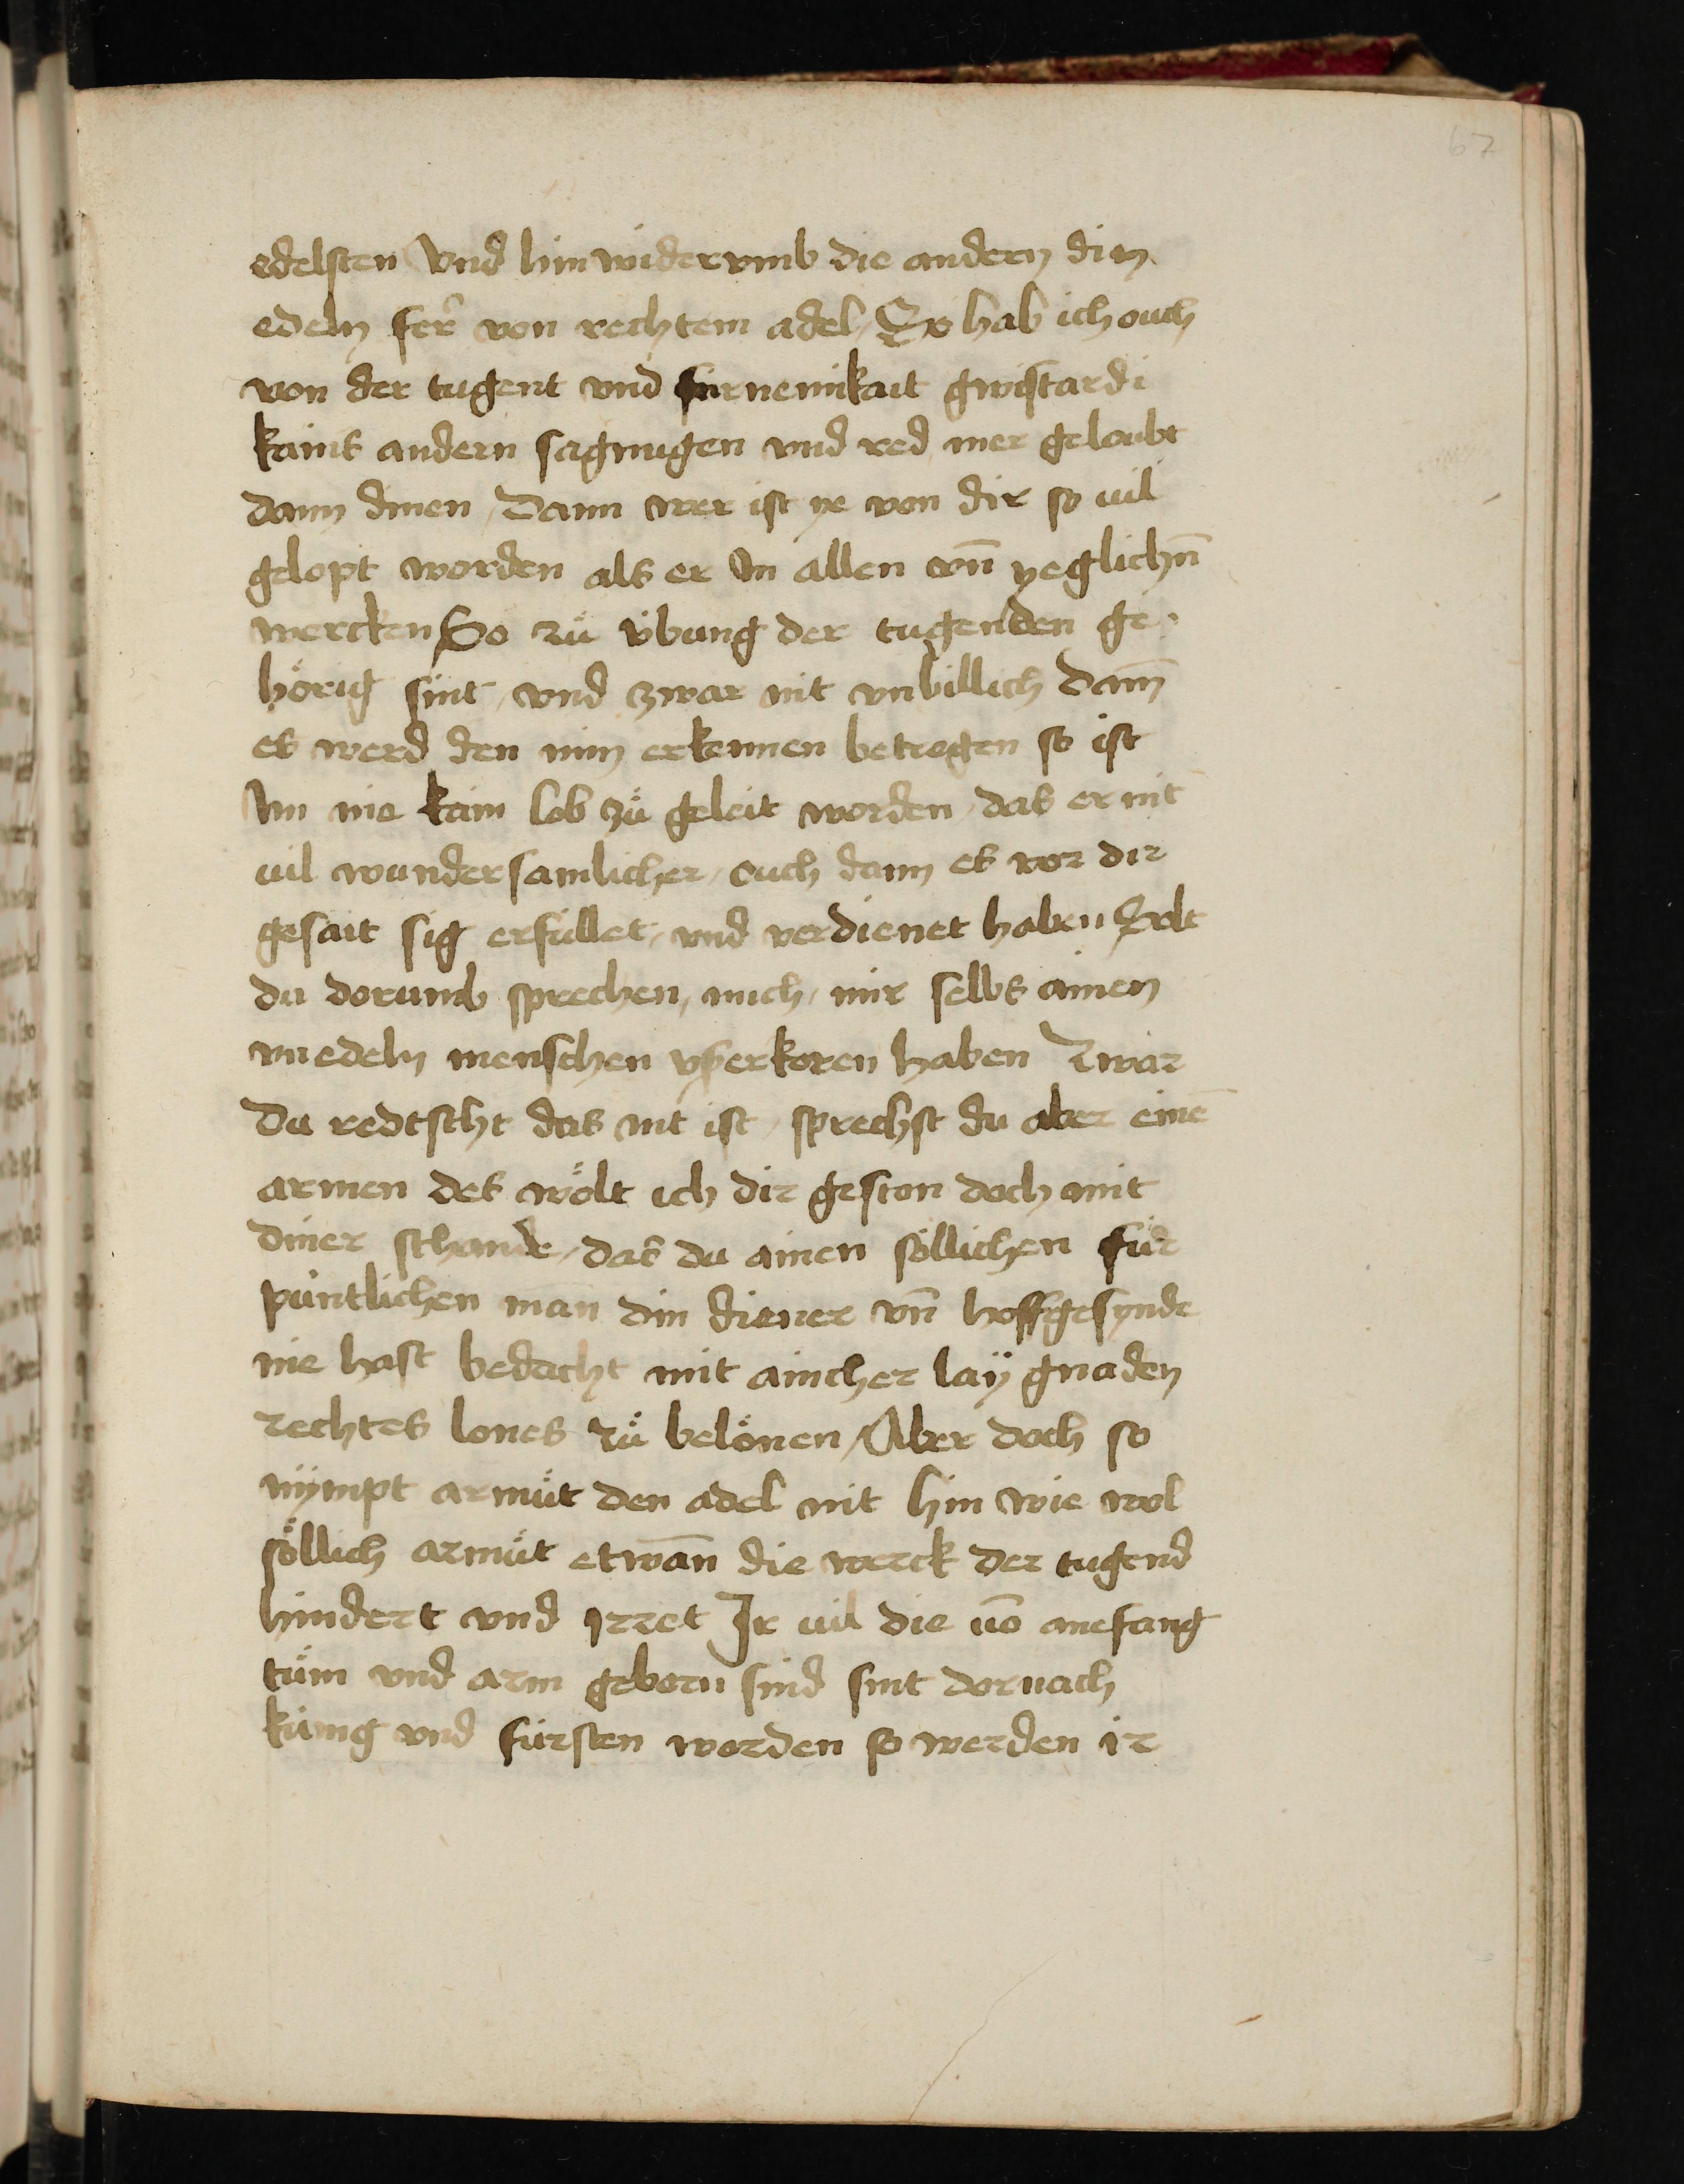 67
edelsten Vnd hin widervmb die andern din
edeln fer von rechtem adel / So hab ich ouch
von der tugent vnd fürnemikait gwistardi
kains andern sagnugen vnd red mer geloubt
dann dinen / Dann wer ist ye von dir so uil
gelopt worden als er In allen vn̄ yeglichn̄
wercken So zů v̈bung der tugenden ge-
hörig sint / vnd zwar nit vnbillich Dan̄
es werd den min erkennen betregen so ist
Im nie kain lob zů geleit worden / das er nit
uil wundersamlicher / ouch dann es vor dir
gesait sig erfüllet / vnd verdienet haben Solt
du dorumb sprechen, mich / mir selbs ainen
vnedeln menschen vßerkoren haben Zwar
Du redtscht das nit ist / sprechst du aber eine̅
armen des wölt ich dir geston doch mit
diner schande / das du ainen söllichen für
püntlichen man̄ din diener vn̄ hoffgesynde
nie hast bedacht mit aincher laÿ gnaden
rechtes lones zů belönen / Aber doch so
nÿmpt armůt den adel nit hin wie wol
söllich armůt etwan̄ die werck der tugend
hindert vnd Irret Ir uil die uo̅ anefang
tům vnd arm geborn sind sint dornach
künig vnd fürsten worden so werden ir